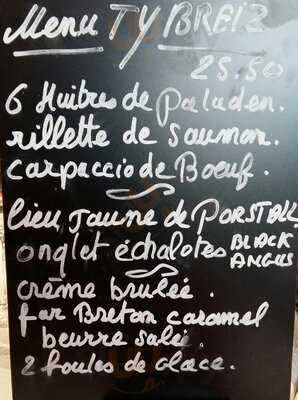 Menu TY BREIZ
25.50
6 Huitres de Paluden.
rillette de Saumon.
carpaccio de Boeuf.
lieu Jaune de PORSTALL
onglet échalotes BLACK ANGUS
crème brulée.
far Breton caramel
beurre salé.
2 boules de glace.